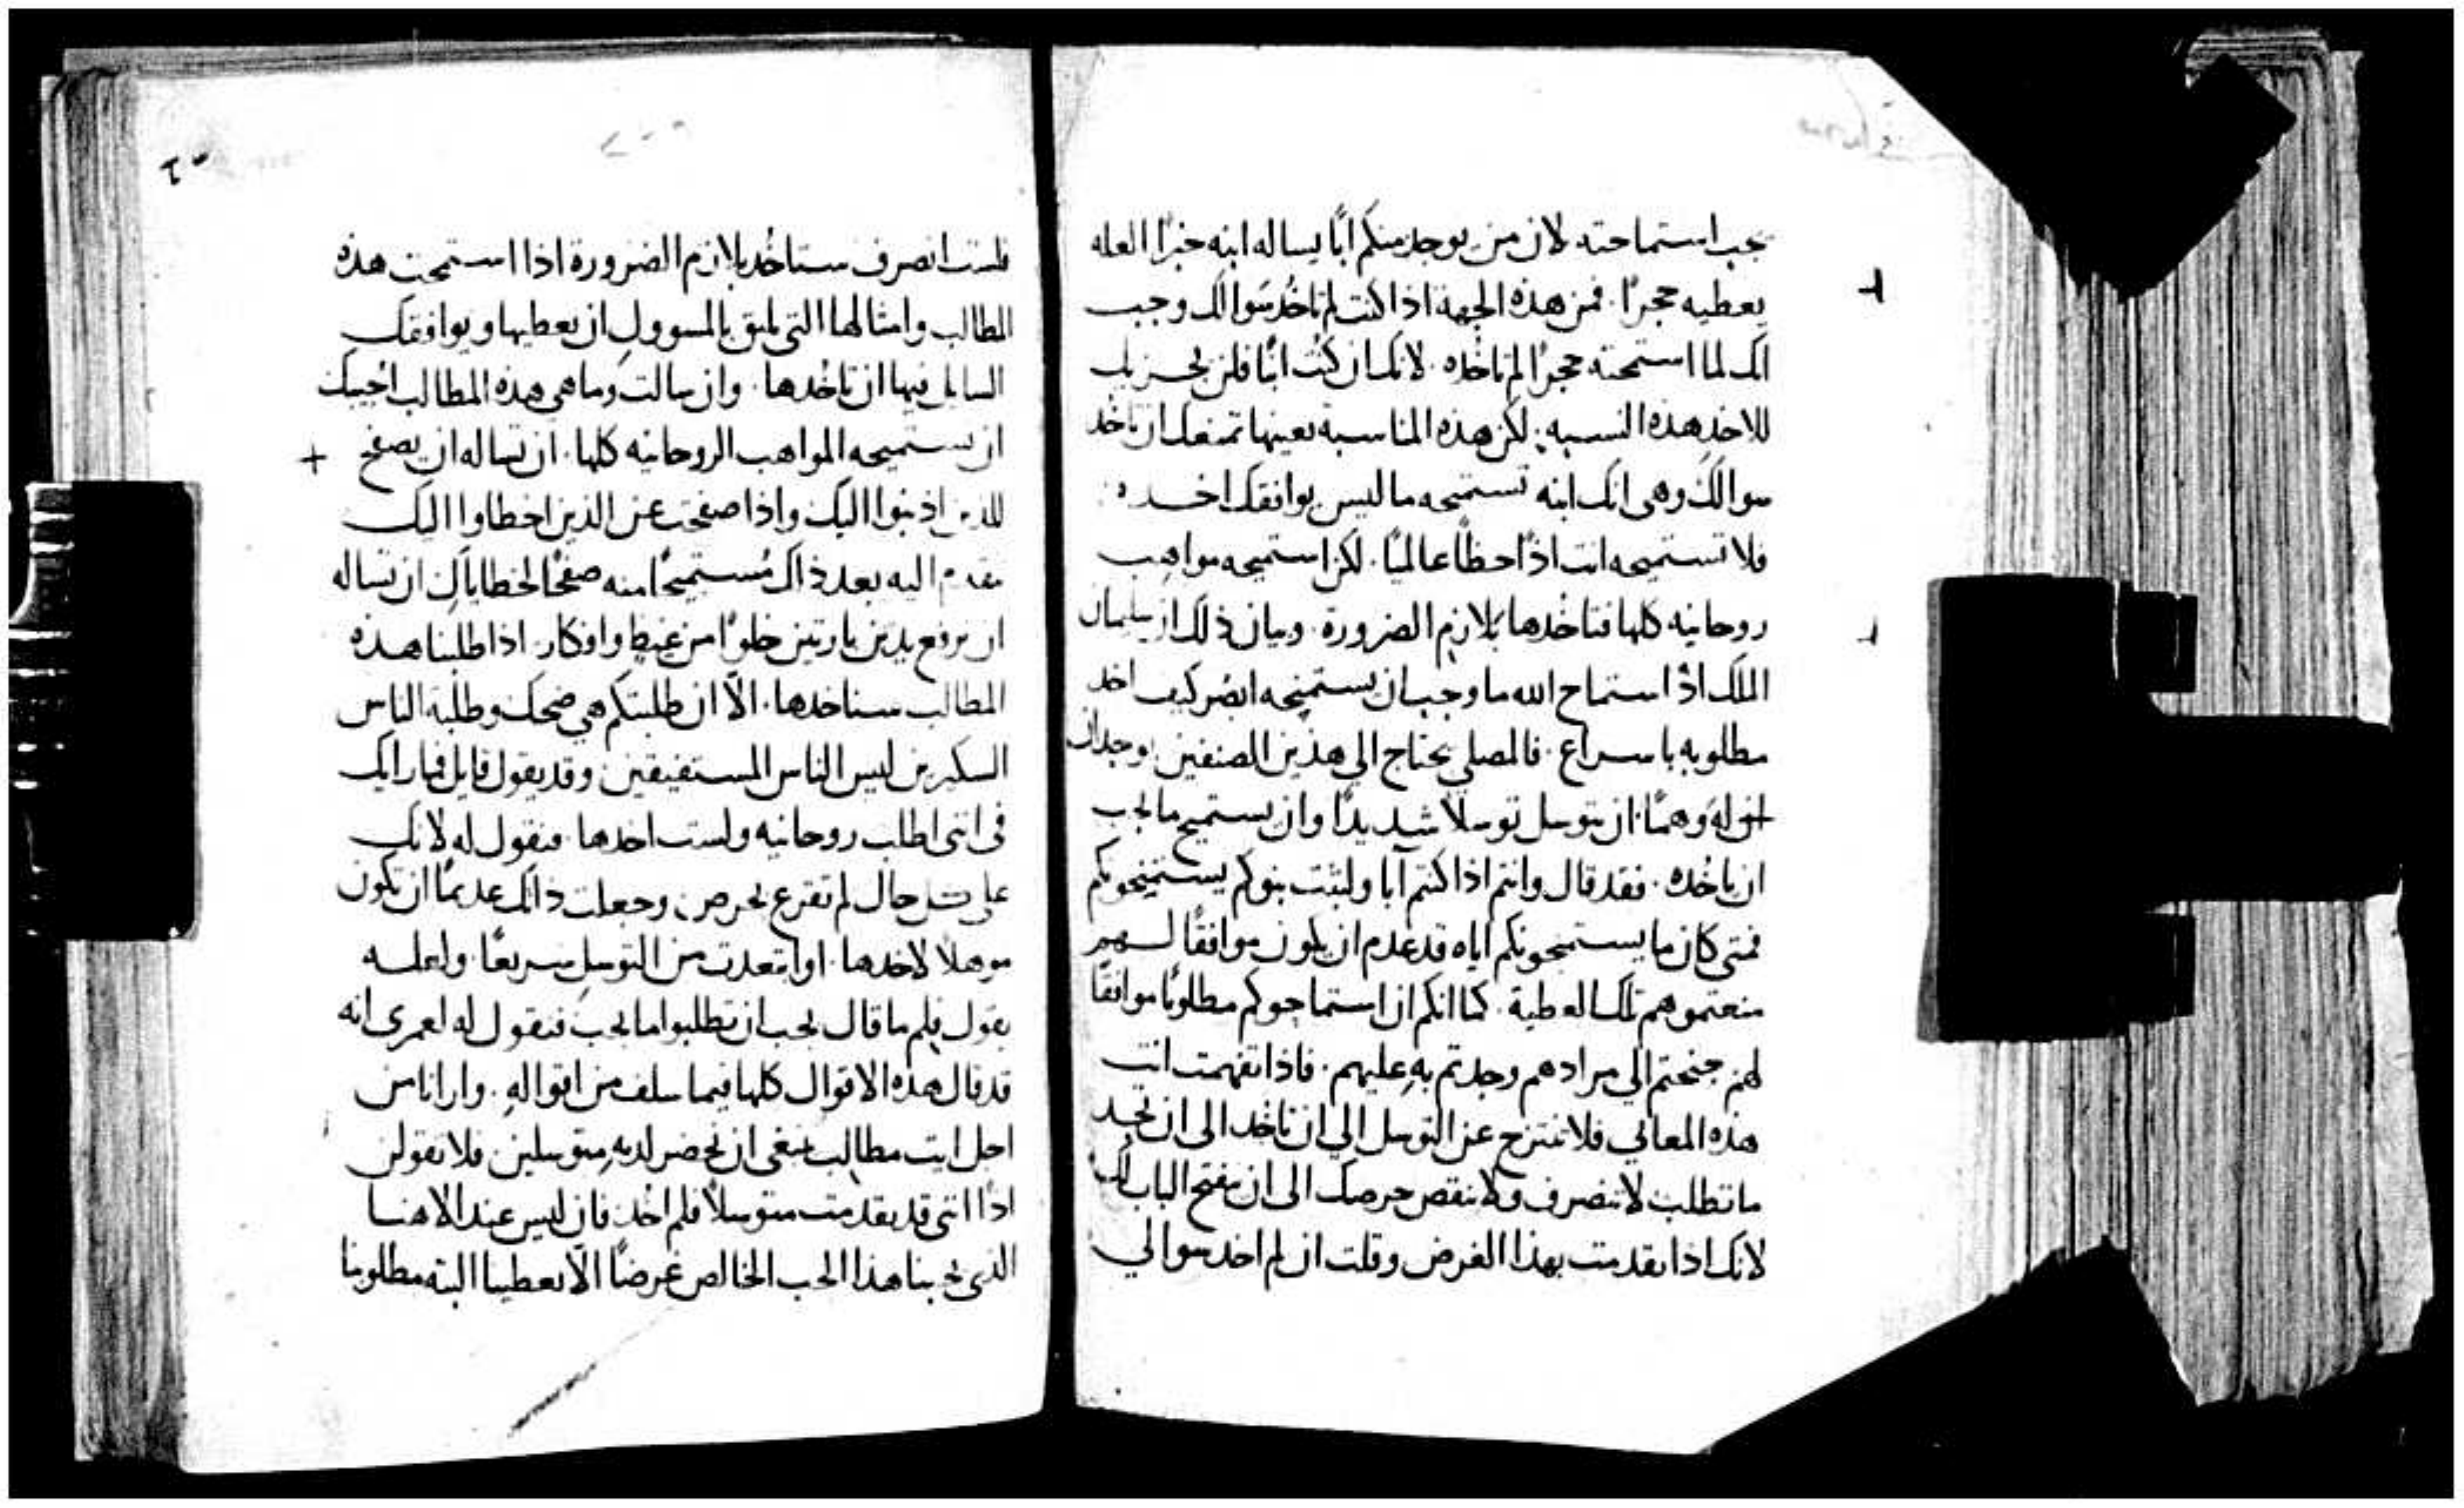 يجب استماحته لان من يوجد منكم ابًا يساله ابنه خبزًا العله
يعطيه حجرًا. فمن هذه الجهة اذا كنت لم تاخُد سُوالك وجب
انك لما استمحته حجرًا لم تاخده. لانك ان كنُت ابنًا فلن يجزيك
للاخدِ هده النسبه. لكن هذه المناسبة بعينها تمنعك ان تاخُد
سوالك وهي انك ابنه تستميحه ما ليس يوافقك اخده.
فلا تستميحه انت اذًا حظًا عالميًا. لكن استميحه مواهب
روحانيه كلها فتاخُدها بلازم الضرورة. وبيان ذلك ان سليمان
الملك اذ استماح الله ما وجب ان يستميحه ابصُر كيف اخد
مطلوبه باسراع. فالمصلي يحتاج الي هذين الصنفين يوجدان
له وهمًا. ان يتوسل توسلاً شديدًا وان يستميح ما يجب
ان ياخُده. فقد قال وانتم اذا كنتم آبا ولبثت بنوكم يستميحونكم
فمتى كان ما يستميحونكم اياه قد عدم ان يكون موافقًا لهم
منعتموهم تلك العطية. كما انكم ان استماحوكم مطلوبًا موافقًا
لهم جنحتم الي مرادهم وجدتم بهِ عليهم. فاذا تفهمت انت
هذه المعاني فلا تنتزح عن التوسل الي ان تاخُد الى ان تجد
ما تطلب لا تنصرف ولا تنقص حرصك الى ان ينفتح الباب لك
لانك اذا تقدمت بهذا الغرض وقلت ان لم اخد سوالي
فلست انصرف ستاخُد بلازم الضرورة اذا استمحت هذه
المطالب وامثالها التي يليق بالمسوول ان يعطيها ويوافقك
السايل فيها ان تاخُدها. وان سالت وما هي هذه المطالب اجُبك
ان تستميحه المواهب الروحانيه كلها. ان تساله ان يصفح
للذين اذنبوا اليك واذا صفحت عن الذين اخطاوا اليك
تقدم اليه بعد ذاك مُستميحًا منه صفحًا لخطاياك ان تساله
ان ترفع يدين بارتين خلوًا من غيظ وافكار. اذا طلبنا هذه
المطالب سناخدها. الاّ ان طلبتكم هي ضحك وطلبة الناس
السكيرين ليس الناس المستفيقين وقد يقول قايل فما رايك
في انني اطلب روحانيه ولست اخدها. فنقول له لانك
على كل حال لم تقرع بحرص وجعلت ذاتك عديمًا ان تكون
موهلاً لاخدها. او ابتعدت من التوسل سريعًا. ولعله
يقول فلِم ما قال يجب ان تطلبوا ما يجب فنقول له لعمري انه
قد قال هذه الاقوال كلها فيما سلف من اقواله. وارانا من
اجل ايت مطالب ينبغي ان نحضر لديه متوسلين فلا تقولن
اذًا انني قد تقدمت متوسلاً فلم اخُد فان ليس عند الاهنا
الذي يحبنا هذا الحب الخالص غرضًا الاّ يعطينا البته مطلوبنا